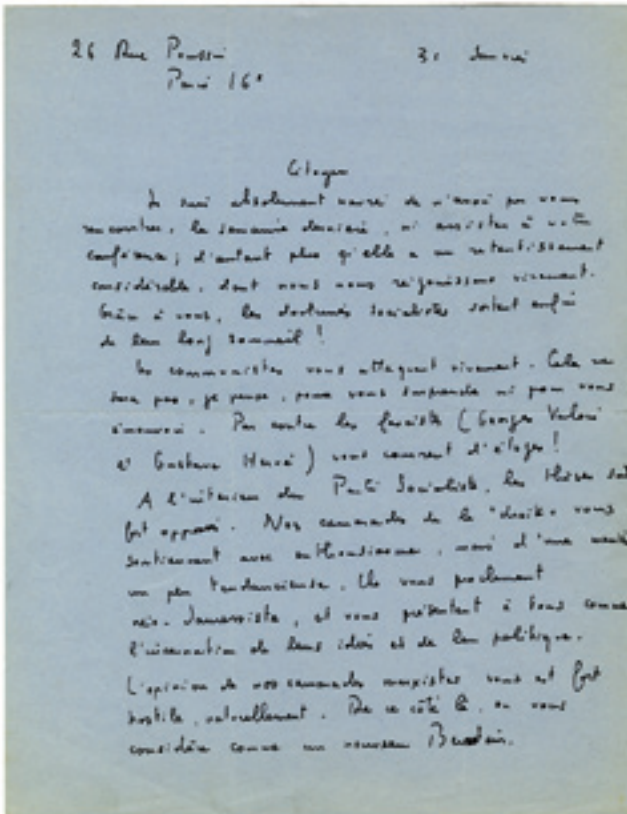 26 Rue Poussin 31 Janvier
Paris 16e
Citoyen
Je suis absolument navré de n'avoir pu vous
rencontrer, la semaine dernière, ni assister à votre
conférence ; d'autant plus qu'elle a un retentissement
considérable, dont nous nous réjouissons vivement.
Grâce à vous, les doctrines socialistes sortent enfin
de leur long sommeil !
Les communistes vous attaquent vivement. Cela ne
sera pas, je pense, pour vous surprendre ni pour vous
émouvoir. Par contre les fascistes (Georges Valois
et Gustave Hervé) vous couvrent d'éloges !
A l'intérieur du Parti Socialiste, les thèses sont
fort opposées. Nos camarades de la "droite" vous
soutiennent avec enthousiasme, mais d'une manière
un peu tendancieuse. Ils vous proclament
néo-Jauressiste, et vous présentent à tous comme
l'incarnation de leurs idées et de leur politique.
L'opinion de nos camarades marxistes vous est fort
hostile, naturellement. De ce côté là, on vous
considère comme un nouveau Bernstein.